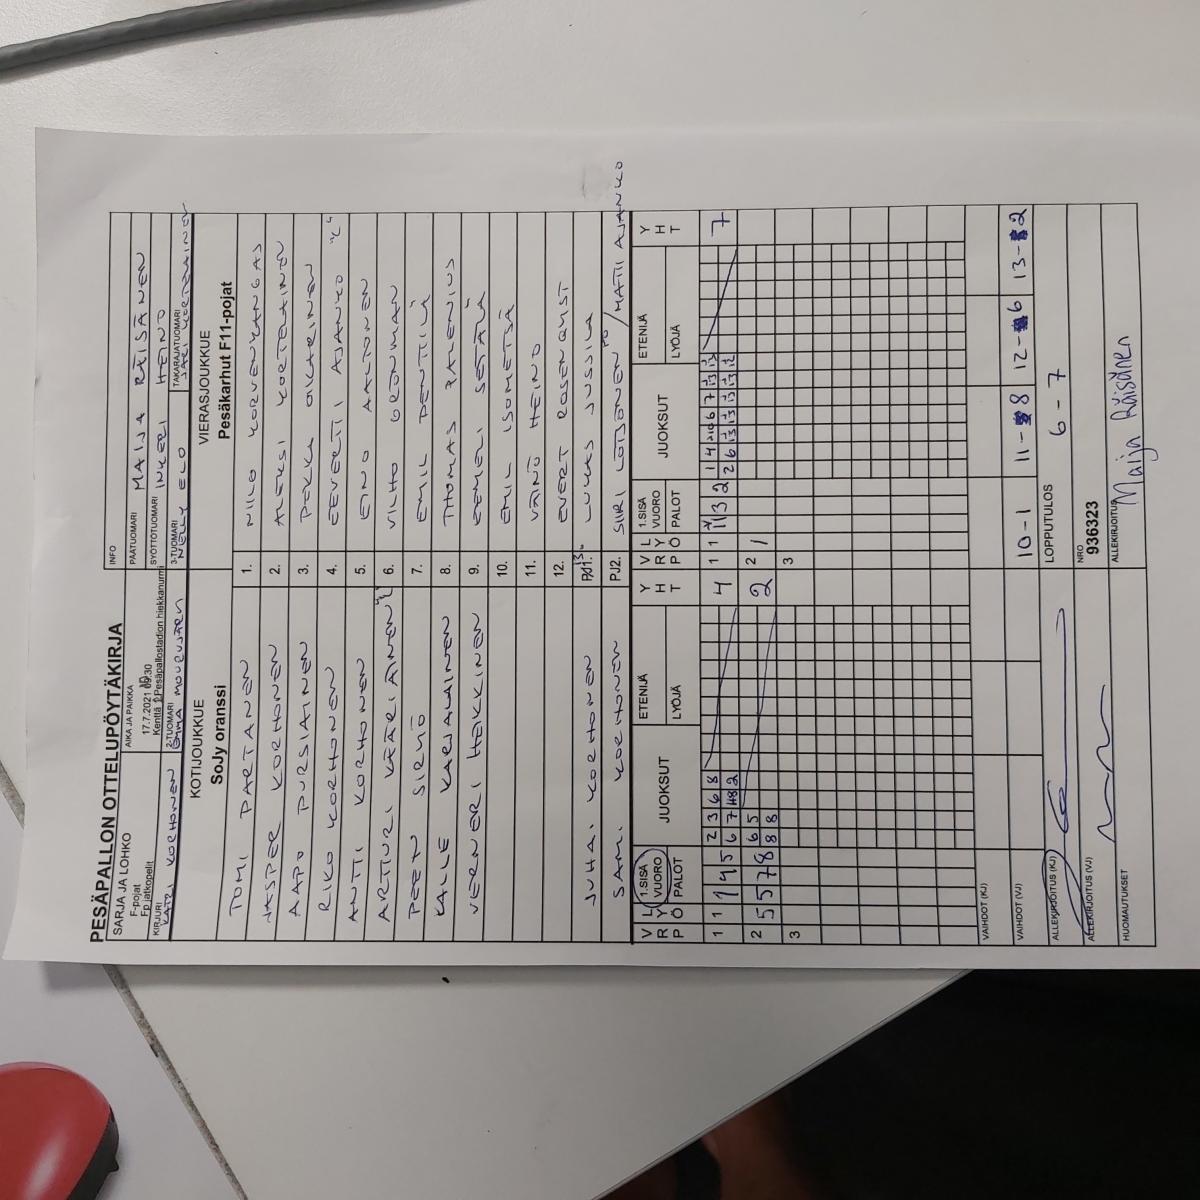 PESÄPALLON OTTELUPÖYTÄKIRJA
SARJA JA LOHKO
F-pojat
Fp jatkopelit
AIKA JA PAIKKA
17.7.2021 09:30
Kenttä 2 Pesäpallostadion hiekkanurmi
INFO
PÄÄTUOMARI MAIJA RÄISÄNEN
SYÖTTÖTUOMARI INKERI HEINO
KIRJURI KATRI KORHONEN
2-TUOMARI
3-TUOMARI NELLY ELO
TAKARAJATUOMARI JARI KORTELAINEN
KOTIJOUKKUE
SoJy oranssi
VIERASJOUKKUE
Pesäkarhut F11-pojat
TOMI PARTANEN 1. NILO KORVENKANGAS
JASPER KORHONEN 2. ALEKSI KORTELAINEN
AAPO PURSIAINEN 3. PEKKA OIKARINEN
RIKO KORHONEN 4. EEVERTI AJANKO "L"
ANTTI KORHONEN 5. EINO AALTONEN
ARTTURI KÄÄRIÄINEN "L" 6. VILHO GRÖNMAN
PEETU SIRVIÖ 7. EMIL PENTTILÄ
KALLE KARJALAINEN 8. THOMAS PALENIUS
VERNERI HEIKKINEN 9. EEMELI SETÄLÄ
10. EMIL ISOMETSÄ
11. VÄINÖ HEINO
12. EVERT ROSENQVIST
JUHA KORHONEN PJ1. 13. LUKAS JUSSILA
SAMI KORHONEN PJ2. SIIRI LOIJONEN PJ / MATTI AJANKO
VRP LYÖ 1.SISÄ VUORO PALOT JUOKSUT ETENIJÄ LYÖJÄ YHT
VRP LYÖ 1.SISÄ VUORO PALOT JUOKSUT ETENIJÄ LYÖJÄ YHT
1 1 1 4 5 2 3 6 8 4
6 7 2
1 1 3 2 1 4 6 7 7
2 5 5 7 8 6 5 2
8 8
2 1
3
3
VAIHDOT (KJ)
VAIHDOT (VJ) 10-1 11-8 12-6 13-2
ALLEKIRJOITUS (KJ)
LOPPUTULOS 6 - 7
ALLEKIRJOITUS (VJ)
NRO
936323
HUOMAUTUKSET
ALLEKIRJOITUS Maija Räisänen